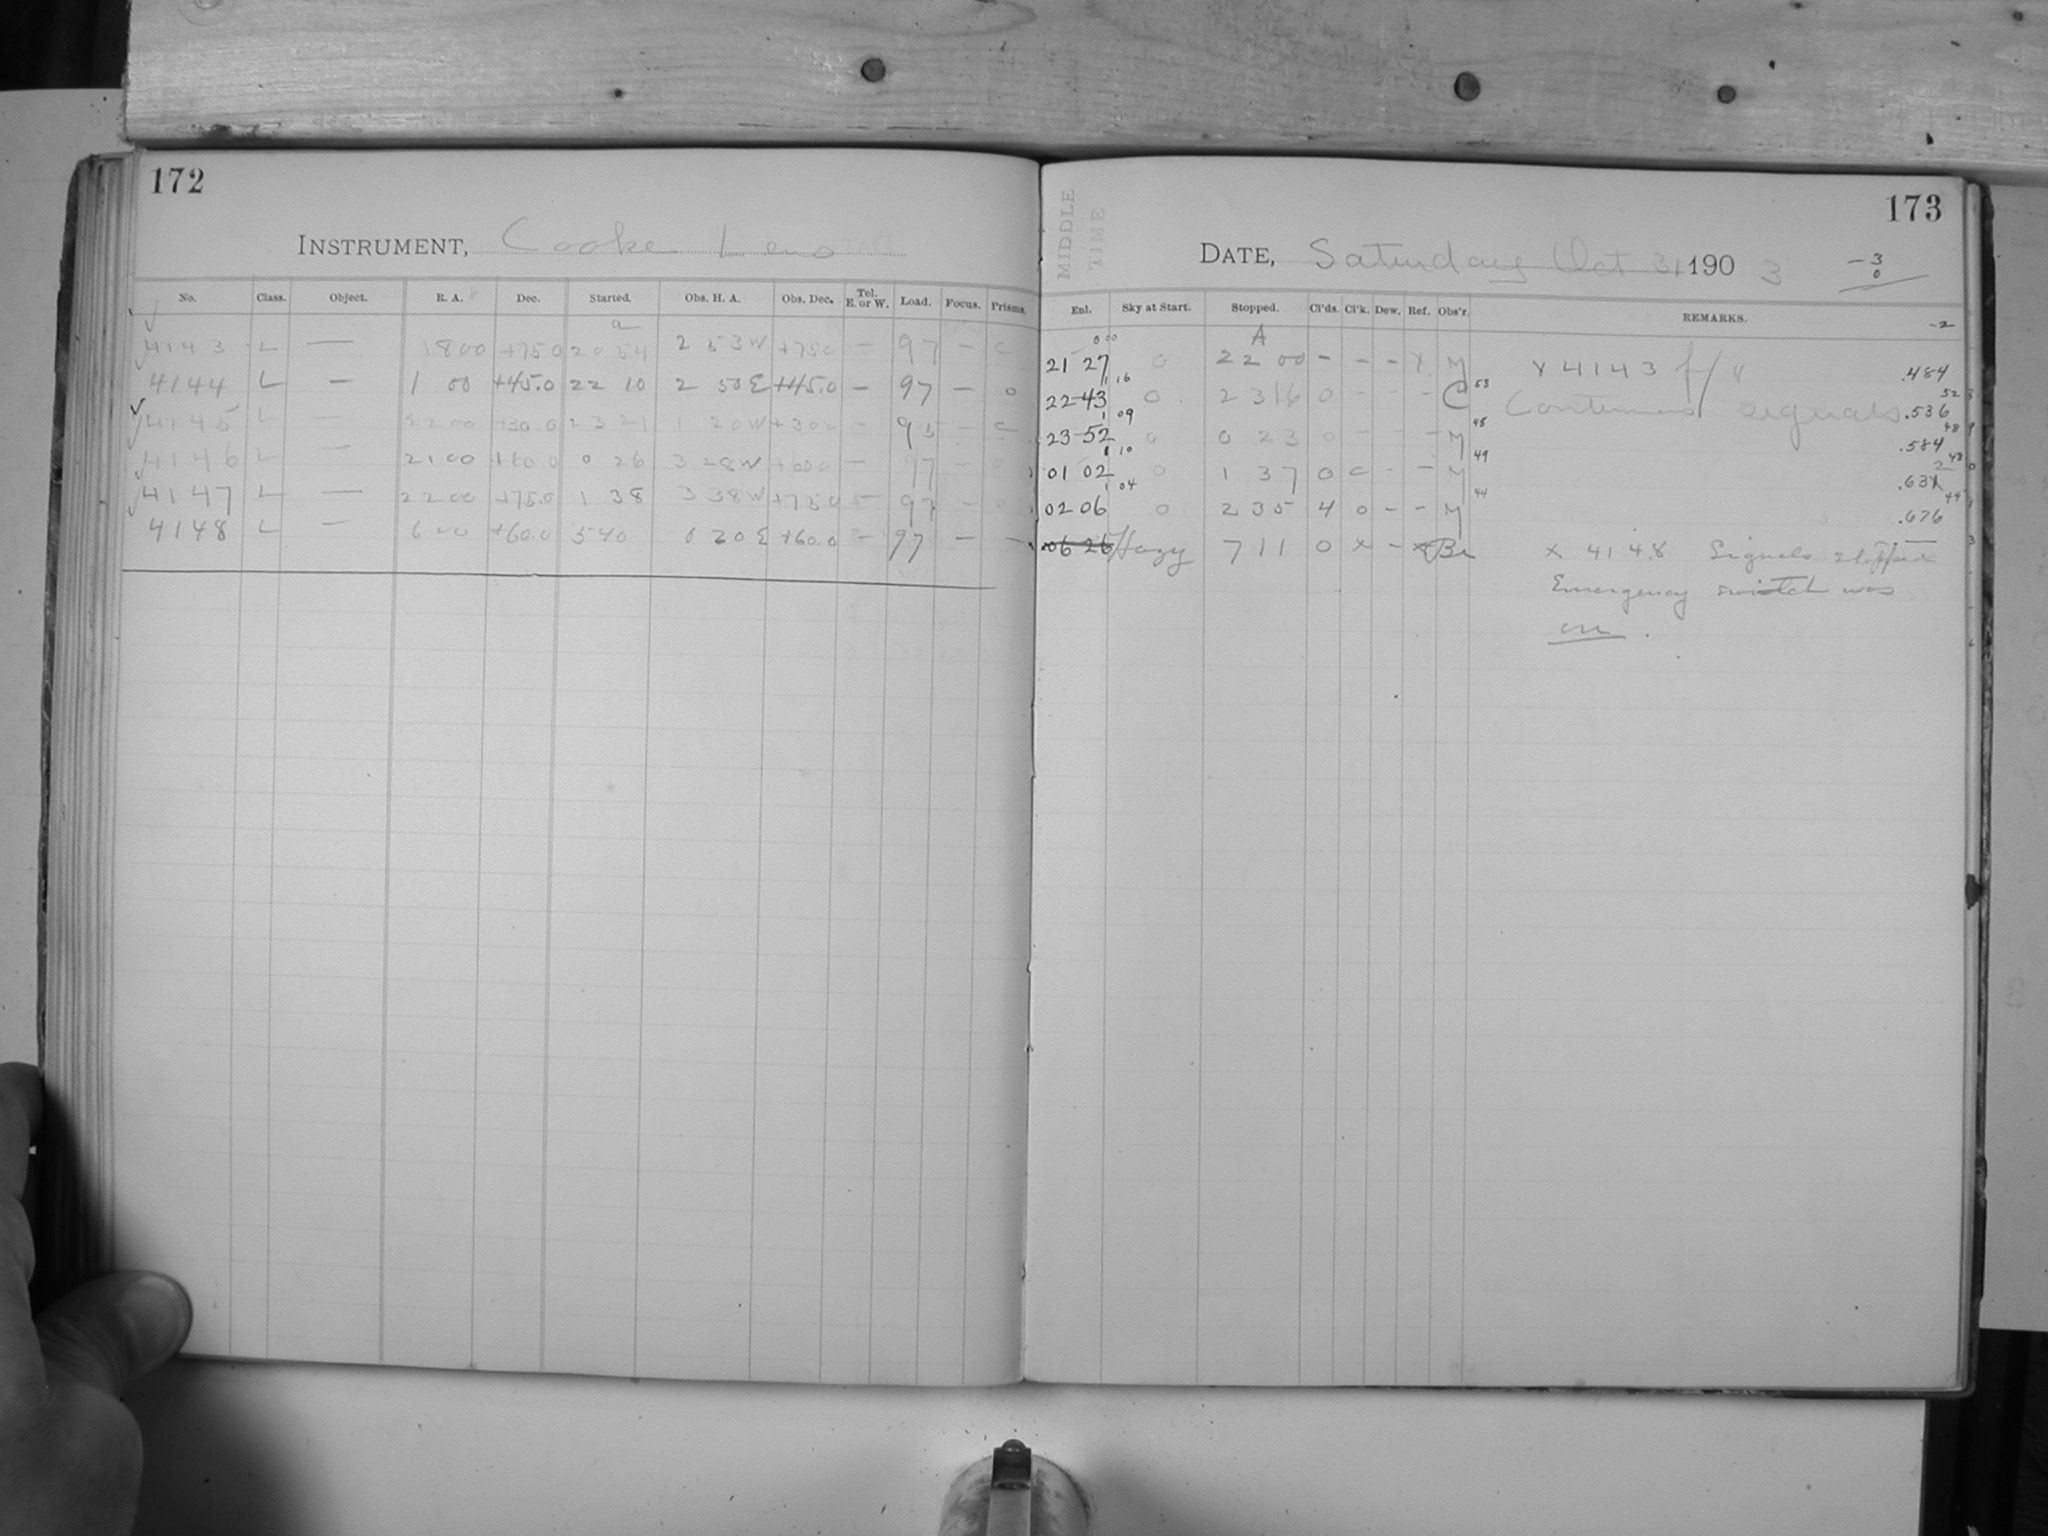 172
INSTRUMENT, Cooke Lens
No. Class. Object. R. A. Dec. Started. Obs. H. A. Obs. Dec. Tel. E. or W. Load. Focus. Prisms.
a
4143 L — 18 00 +75.0 20 54 2 53 W +75.0 — 97 — 0
4144 L — 1 00 +45.0 22 10 2 50 E +45.0 — 97 — 0
4145 L — 22 00 +30.0 23 21 1 20 W +30.0 — 95 — 0
4146 L — 21 00 +60.0 0 26 3 28 W +60.0 — 97 — 0
4147 L — 22 00 +75.0 1 38 3 38 W +75.0 — 97 —
4148 L — 6 00 +60.0 5 40 0 20 E +60.0 — 97 — —
173
MIDDLE TIME
DATE, Saturday Oct 31 1903
-3
0
Enl. Sky at Start. Stopped. Cl'ds. Cl'k. Dew. Ref. Obs'r. REMARKS.
-2
0 00 A
21 27 0 22 00 – – – x M x 4143 .484
1 16 53 52
22 43 0 23 16 0 – – – C Continuous signals .536
1 09 48 48
23 52 0 0 23 0 – – – M .584
1 10 49 48
01 02 0 1 37 0 0 – – M .632
1 04 44 44
02 06 0 2 35 4 0 – – M .676
06 26 Hazy 7 11 0 x – x Br x 4148 Signals stopped
Emergency switch was
on.